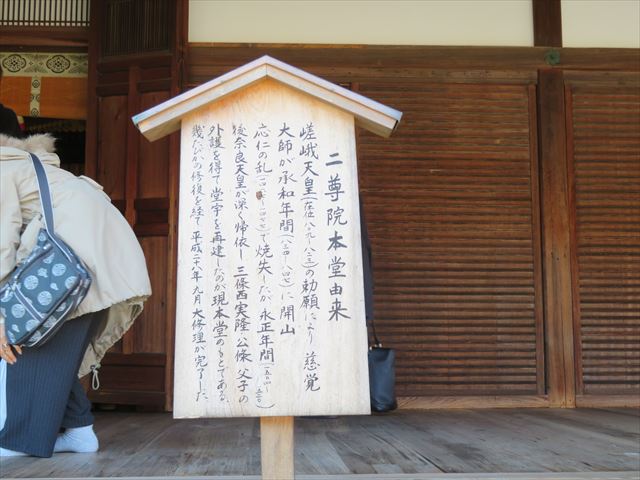 二尊院本堂由来
嵯峨天皇(在位八〇九〜八二三)の勅願により 慈覚
大師が承和年間(八三四〜八四七)に開山
応仁の乱(一四六七〜一四七七)で焼失したが 永正年間(一五〇四〜一五二〇)
後奈良天皇が深く帰依し 三條西実隆・公條 父子の
外護を得て 堂宇を再建したのが現本堂のもとである。
幾たびかの修復を経て 平成二十八年九月 大修理が完了した。